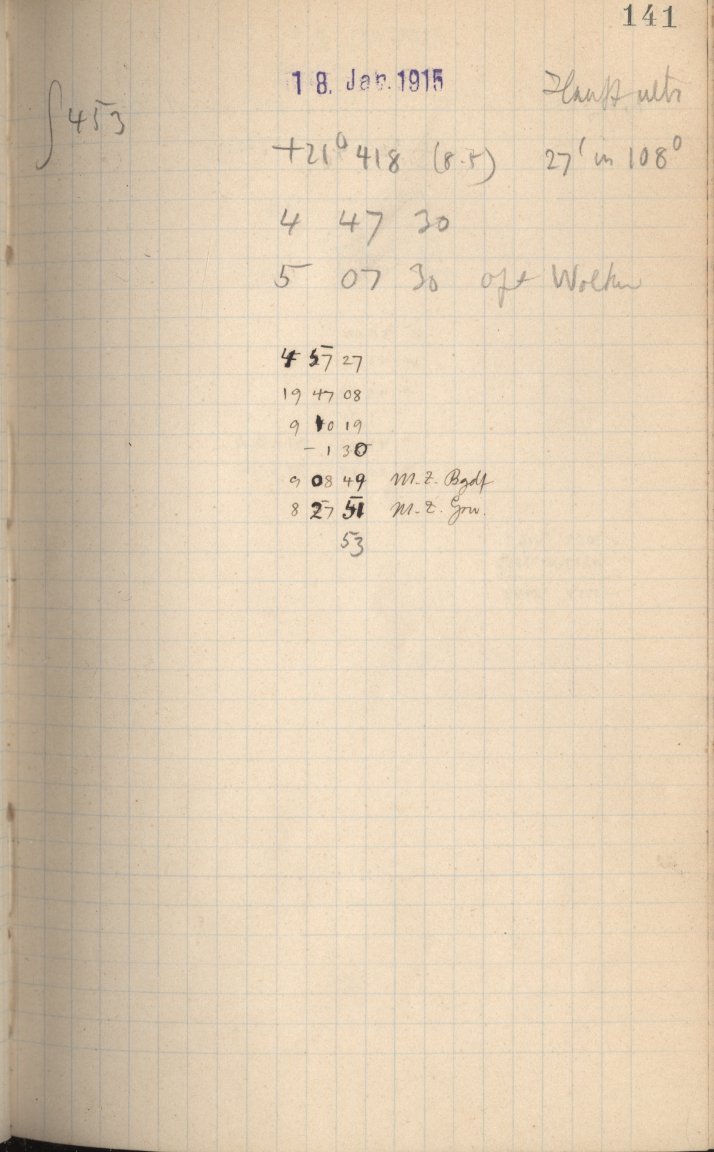 141
18. Jan. 1915
∫453
+21° 418 (8.5) 27' in 108°
4 47 30
5 07 30 oft Wolken
4 57 27
19 47 08
9 10 19
- 1 30
9 08 49 M.Z. Bgdf
8 27 51 M.Z. Grw.
53